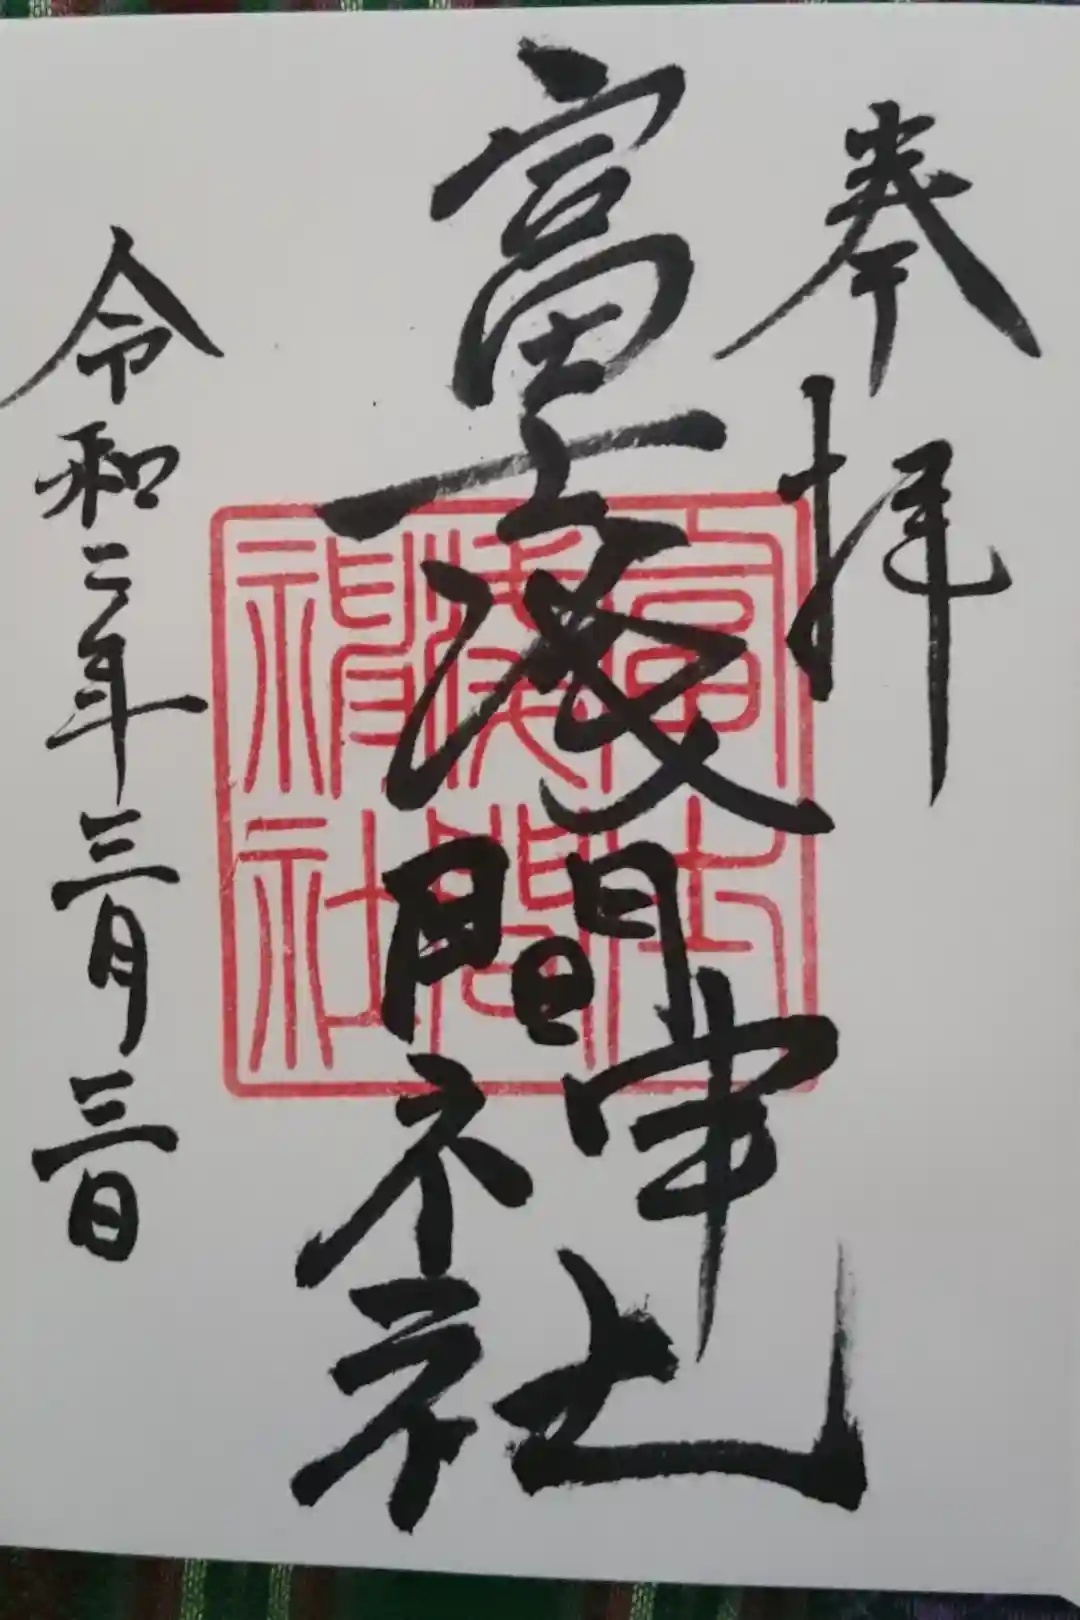 奉拝
富士浅間神社
富士
浅間
神社
令和二年三月三日